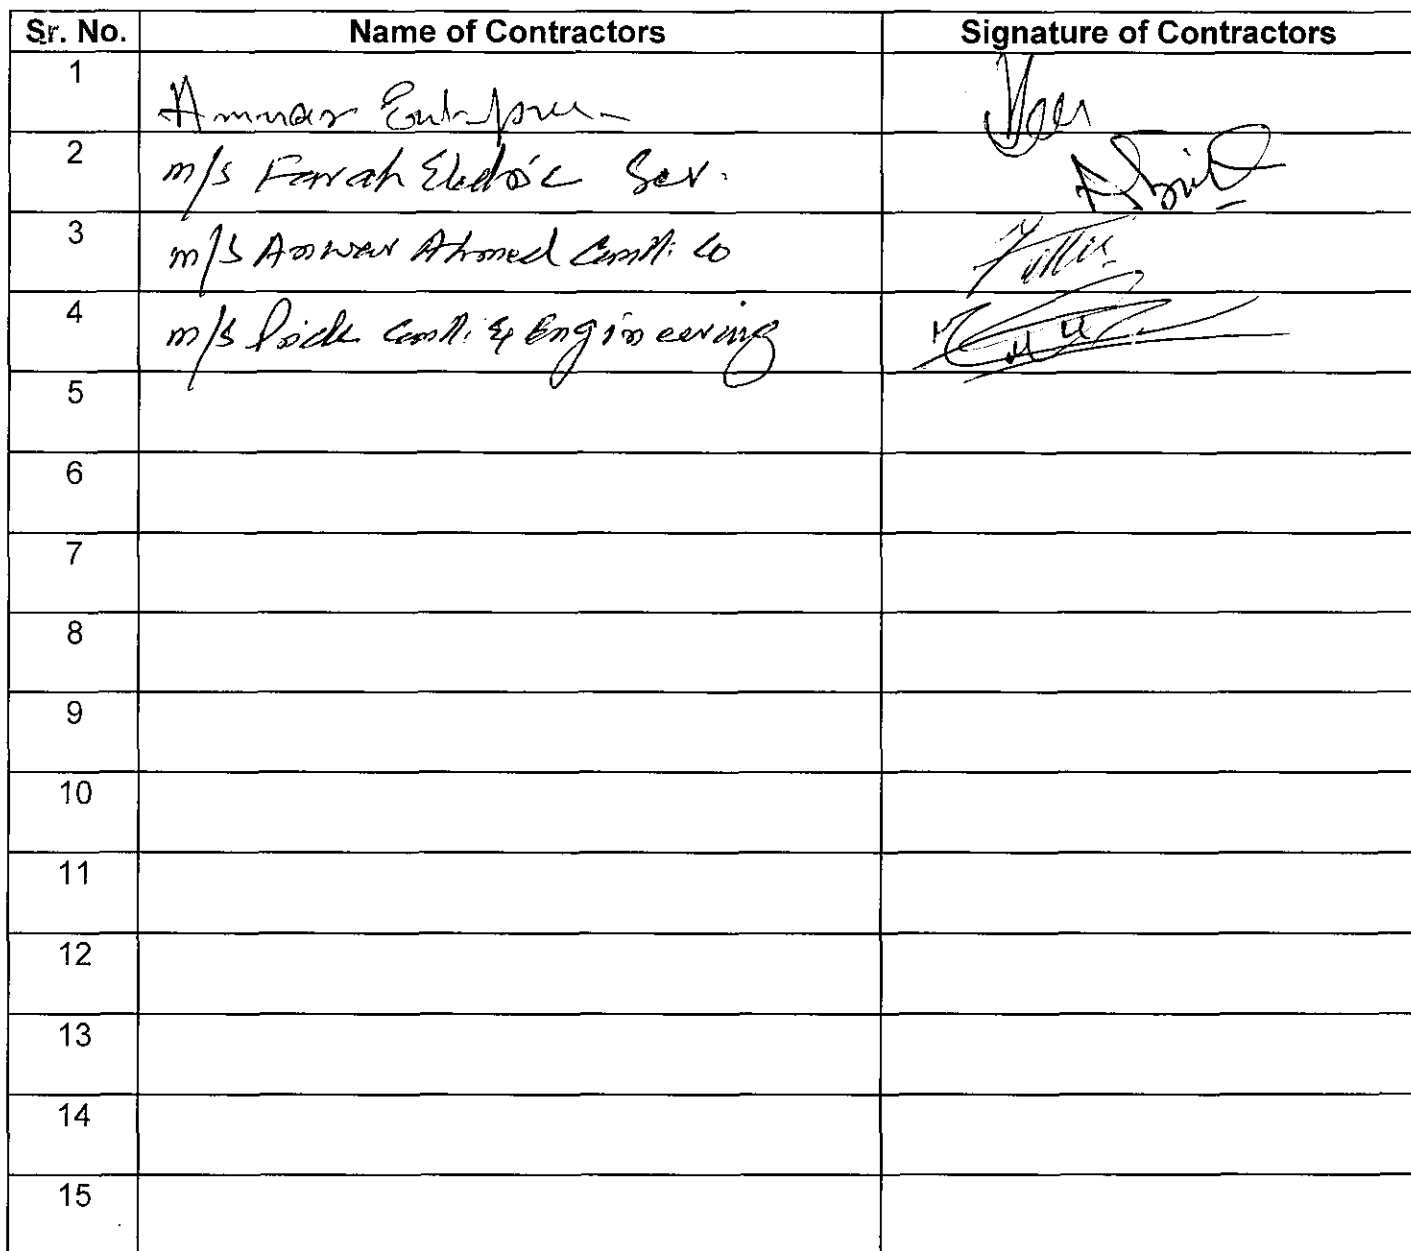 Sr. No. Name of Contractors Signature of Contractors
1 Ammar
2 m/s Farrah Electric Ser.
3 m/s Anwar Ahmed Constt. Co
4 m/s Constt. & Engineering
5
6
7
8
9
10
11
12
13
14
15